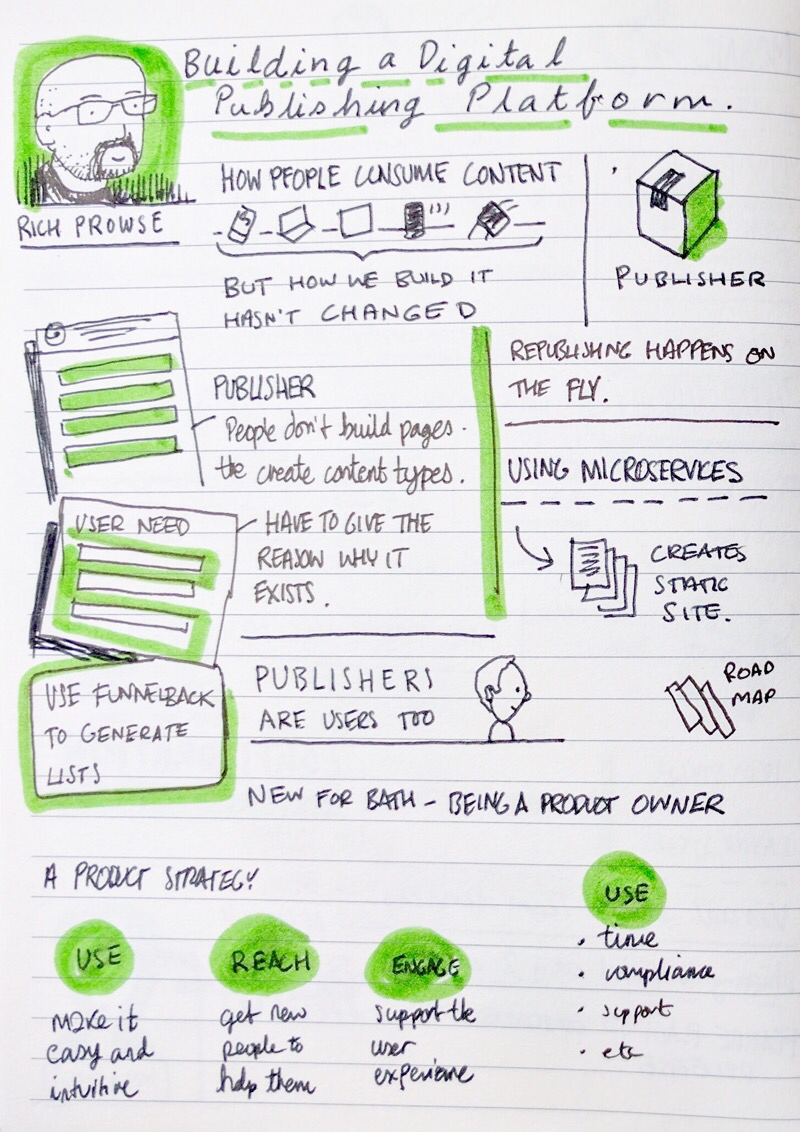 Building a Digital
Publishing Platform.
RICH PROWSE
HOW PEOPLE CONSUME CONTENT
BUT HOW WE BUILD IT
HASN'T CHANGED
PUBLISHER
PUBLISHER
People don't build pages.
the create content types.
REPUBLISHING HAPPENS ON
THE FLY.
USING MICROSERVICES
CREATES
STATIC
SITE.
USER NEED
HAVE TO GIVE THE
REASON WHY IT
EXISTS.
USE FUNNELBACK
TO GENERATE
LISTS
PUBLISHERS
ARE USERS TOO
ROAD
MAP
NEW FOR BATH - BEING A PRODUCT OWNER
A PRODUCT STRATEGY
USE
make it
easy and
intuitive
REACH
get new
people to
help them
ENGAGE
support the
user
experience
USE
• time
• compliance
• support
• etc